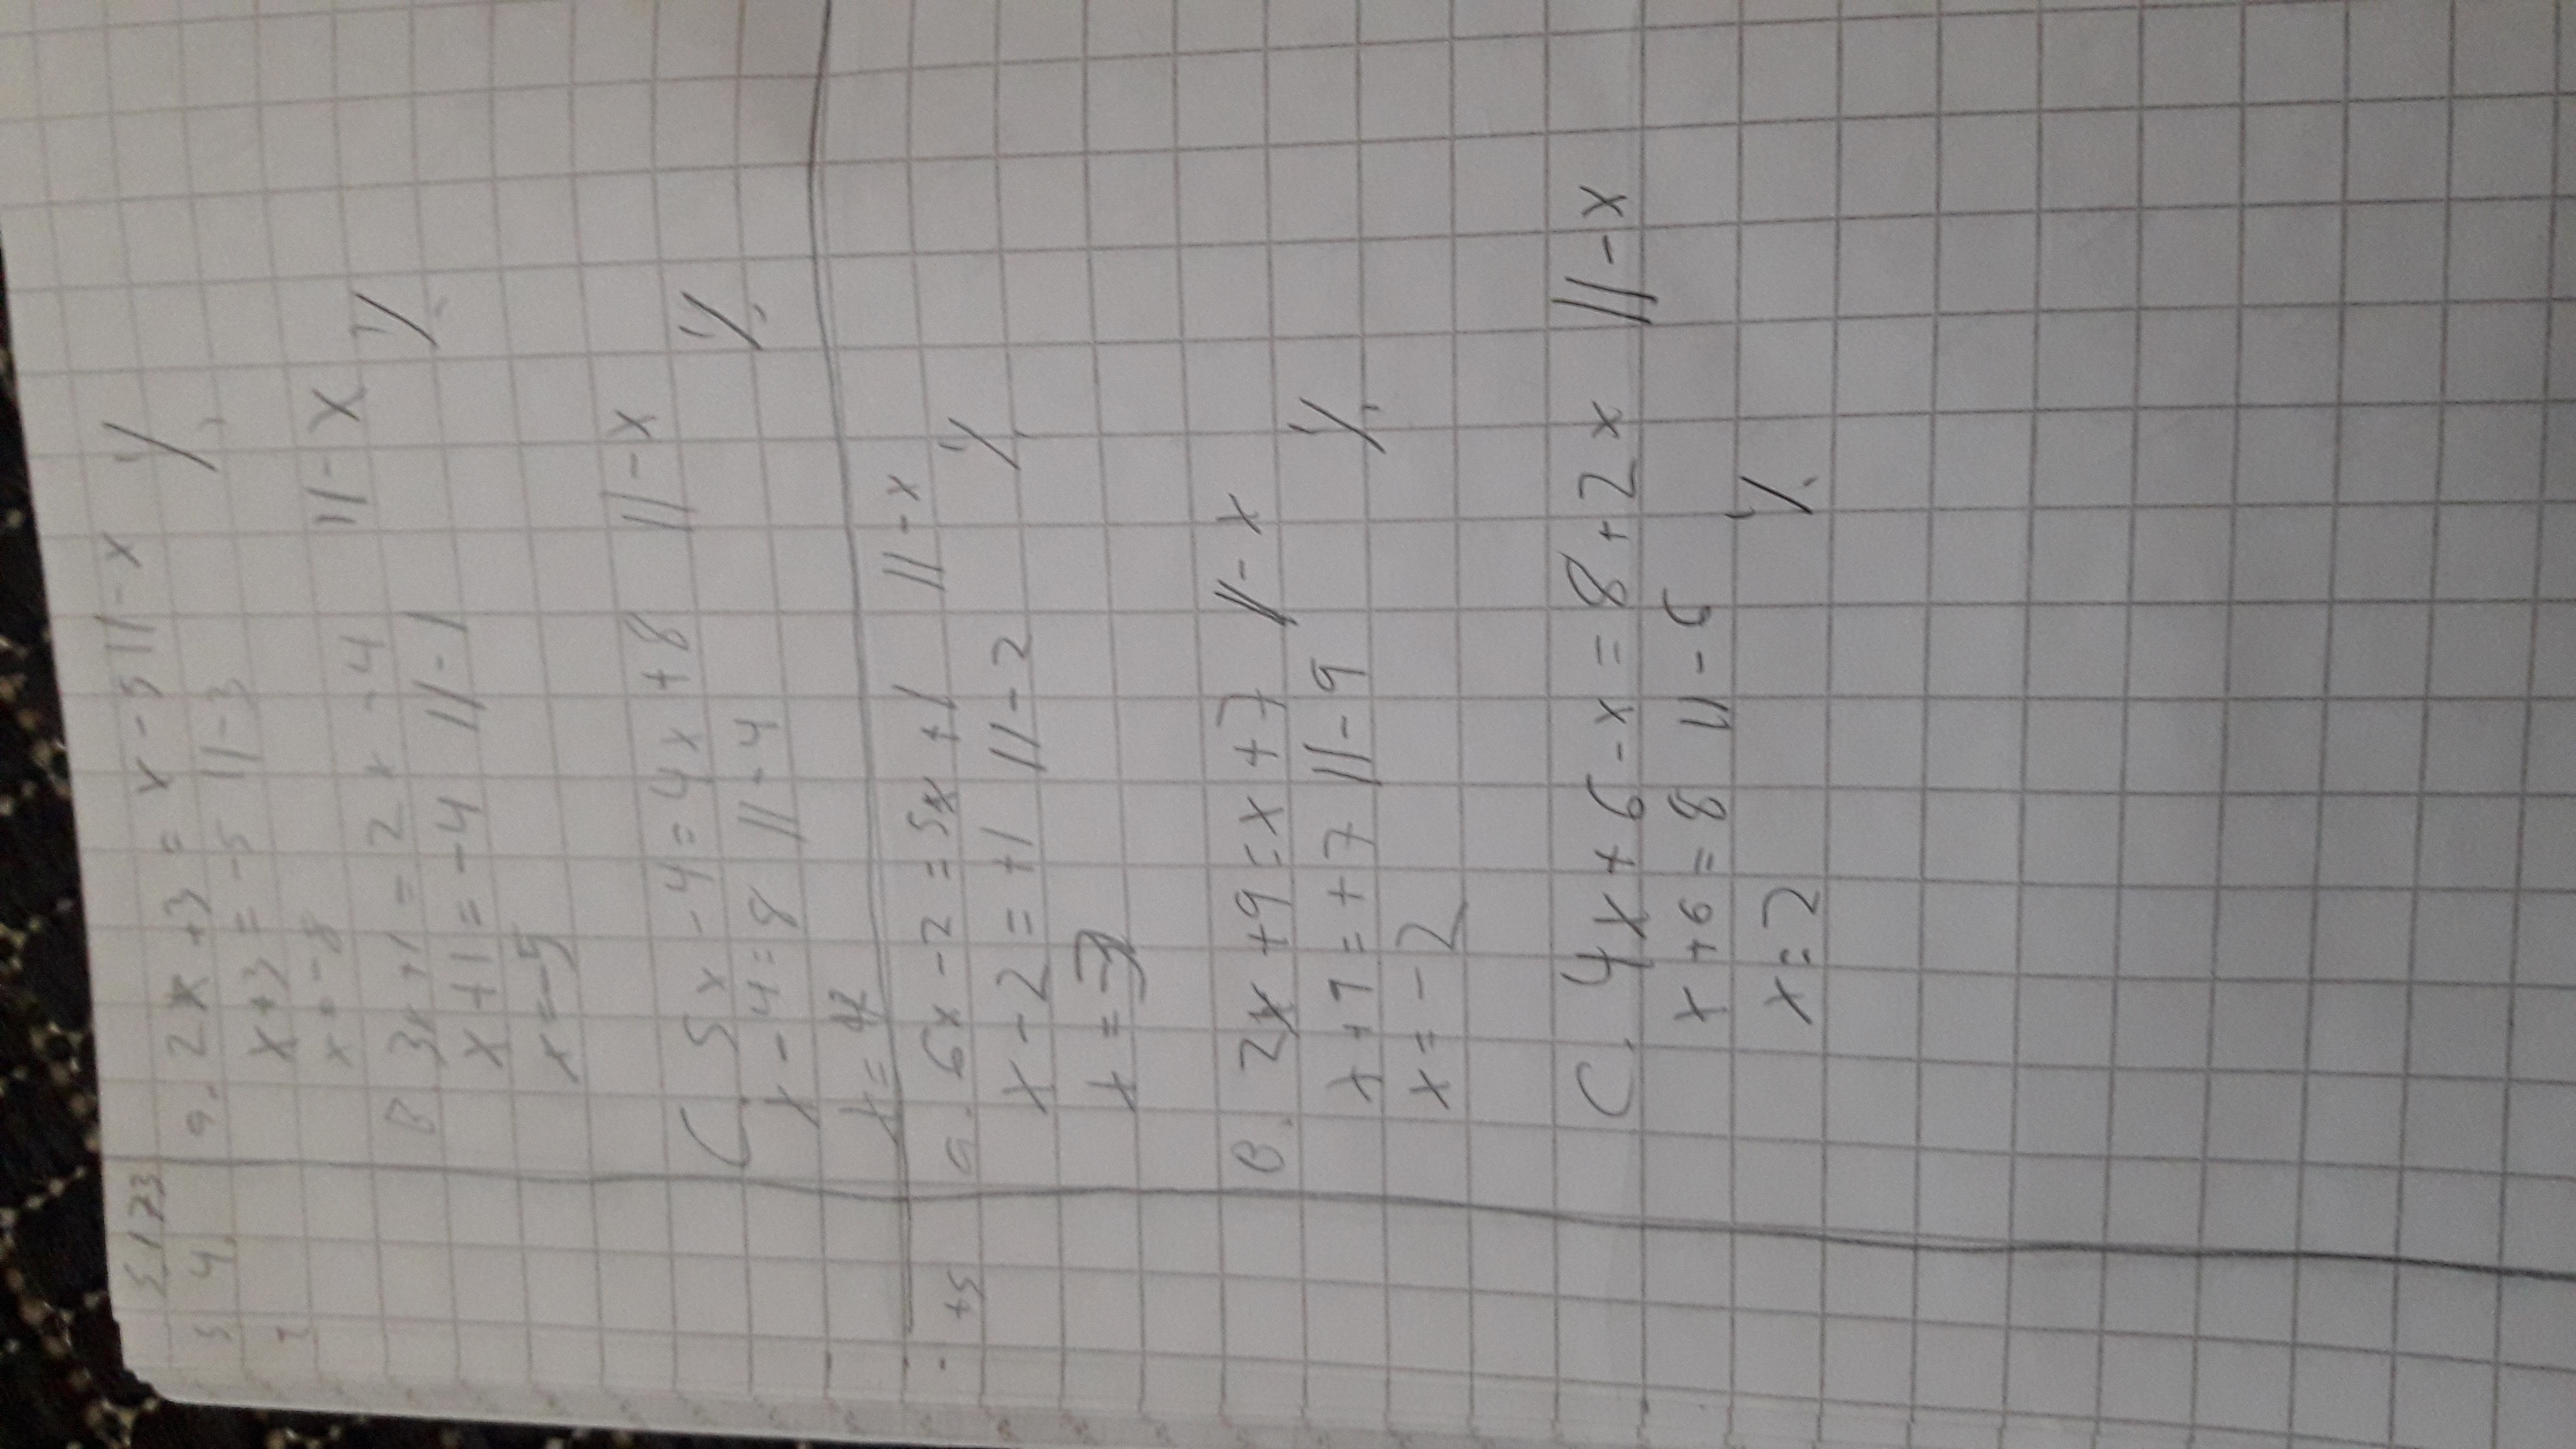 S. 173
4. a. 2x+3 = x-5 || -x ./.
x+3 = -5 || -3
x = -8
B 3x+1 = 2x -4 || -x
x+1 = -4 || -1 ./.
x = -5
C. 5x -4 = 4x +8 || -x
x - 4 = 8 || -4 ./.
x = 12
+5 a. 6x -2 = 5x +1 || -x
x - 2 = +1 || -2 ./.
B. 2x +9 = x +7 || -x
x +9 = +7 || -9 ./.
x = -2
C. 4x + 6 -x = 8 + 2x || -x
x +6 = 8 || -6
x = 2 ./.